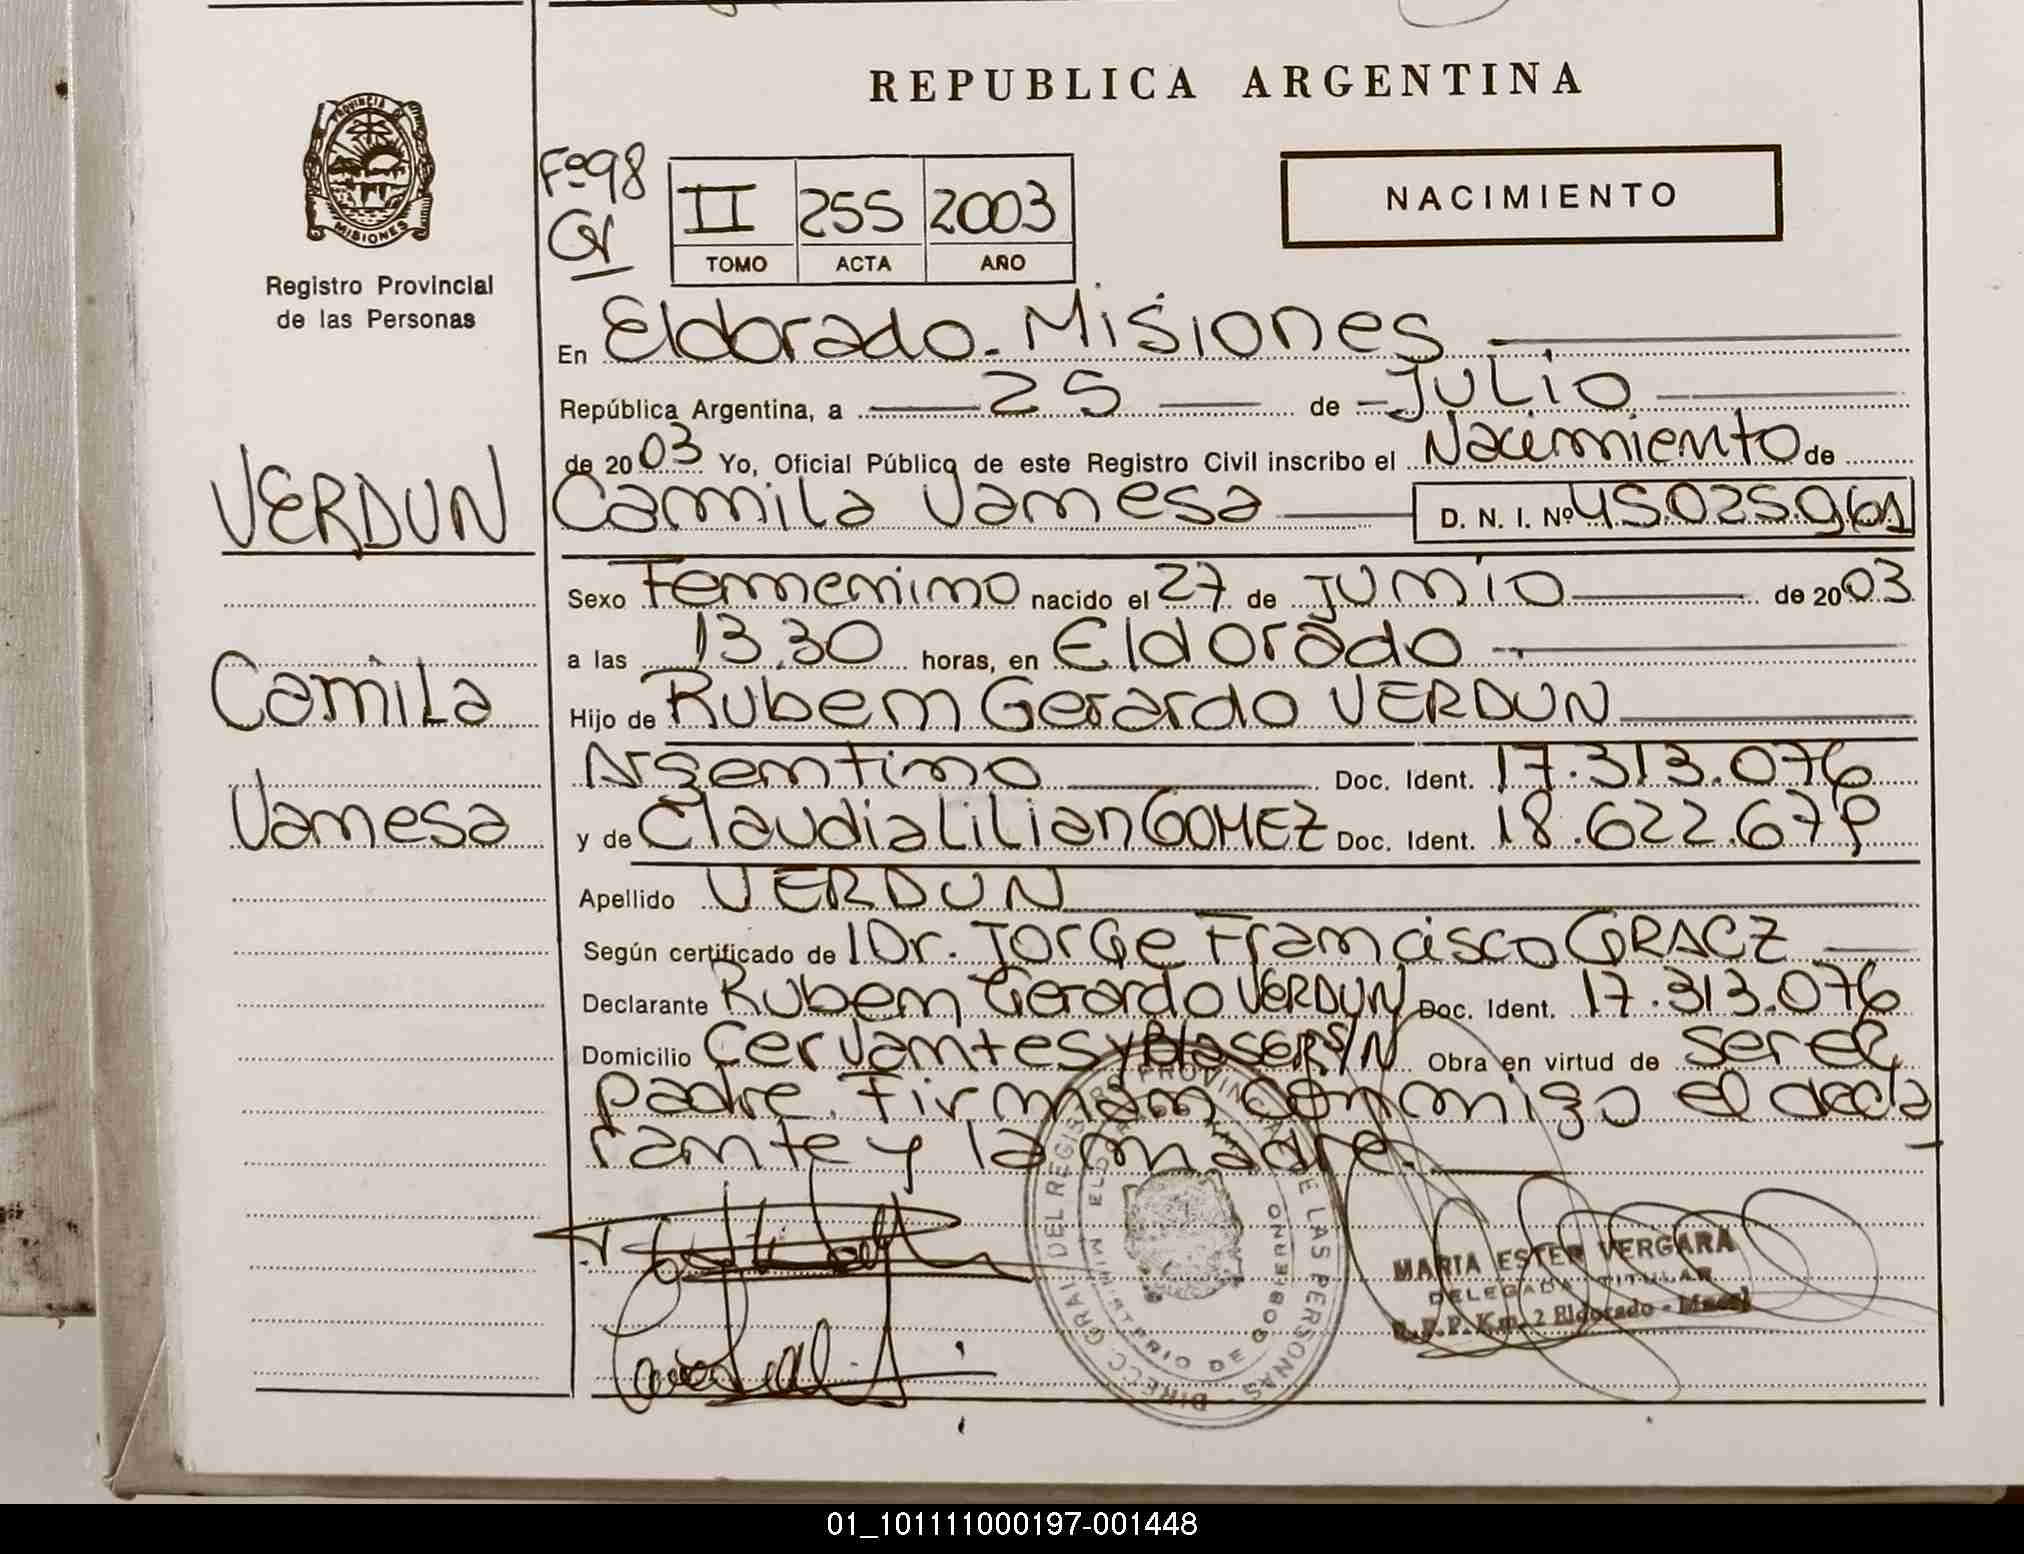 REPUBLICA ARGENTINA
PROVINCIA DE
MISIONES
Registro Provincial
de las Personas
Fº98
II 255 2003
TOMO ACTA AÑO
NACIMIENTO
En Eldorado. Misiones
República Argentina, a 25 de Julio
de 2003 Yo, Oficial Público de este Registro Civil inscribo el Nacimiento de
VERDUN
Camila Vanesa D. N. I. Nº 45025961
Sexo Femenino nacido el 27 de Junio de 2003
a las 13.30 horas, en Eldorado
Camila
Hijo de Ruben Gerardo VERDUN
Argentino Doc. Ident. 17.313.076
Vanesa
y de Claudia Lilian GOMEZ Doc. Ident. 18.622.679
Apellido VERDUN
Según certificado de Dr. Jorge Francisco GRACZ
Declarante Ruben Gerardo VERDUN Doc. Ident. 17.313.076
Domicilio Cervantes y Blaser S/N Obra en virtud de ser el
padre. Firman conmigo el decla
rante y la madre.
DIREC. GRAL DEL REGISTRO PROVINCIAL DE LAS PERSONAS
MINISTERIO DE GOBIERNO
MARIA ESTER VERGARA
DELEGADA TITULAR
R.P.P. Km. 2 Eldorado - Mnes
01_101111000197-001448